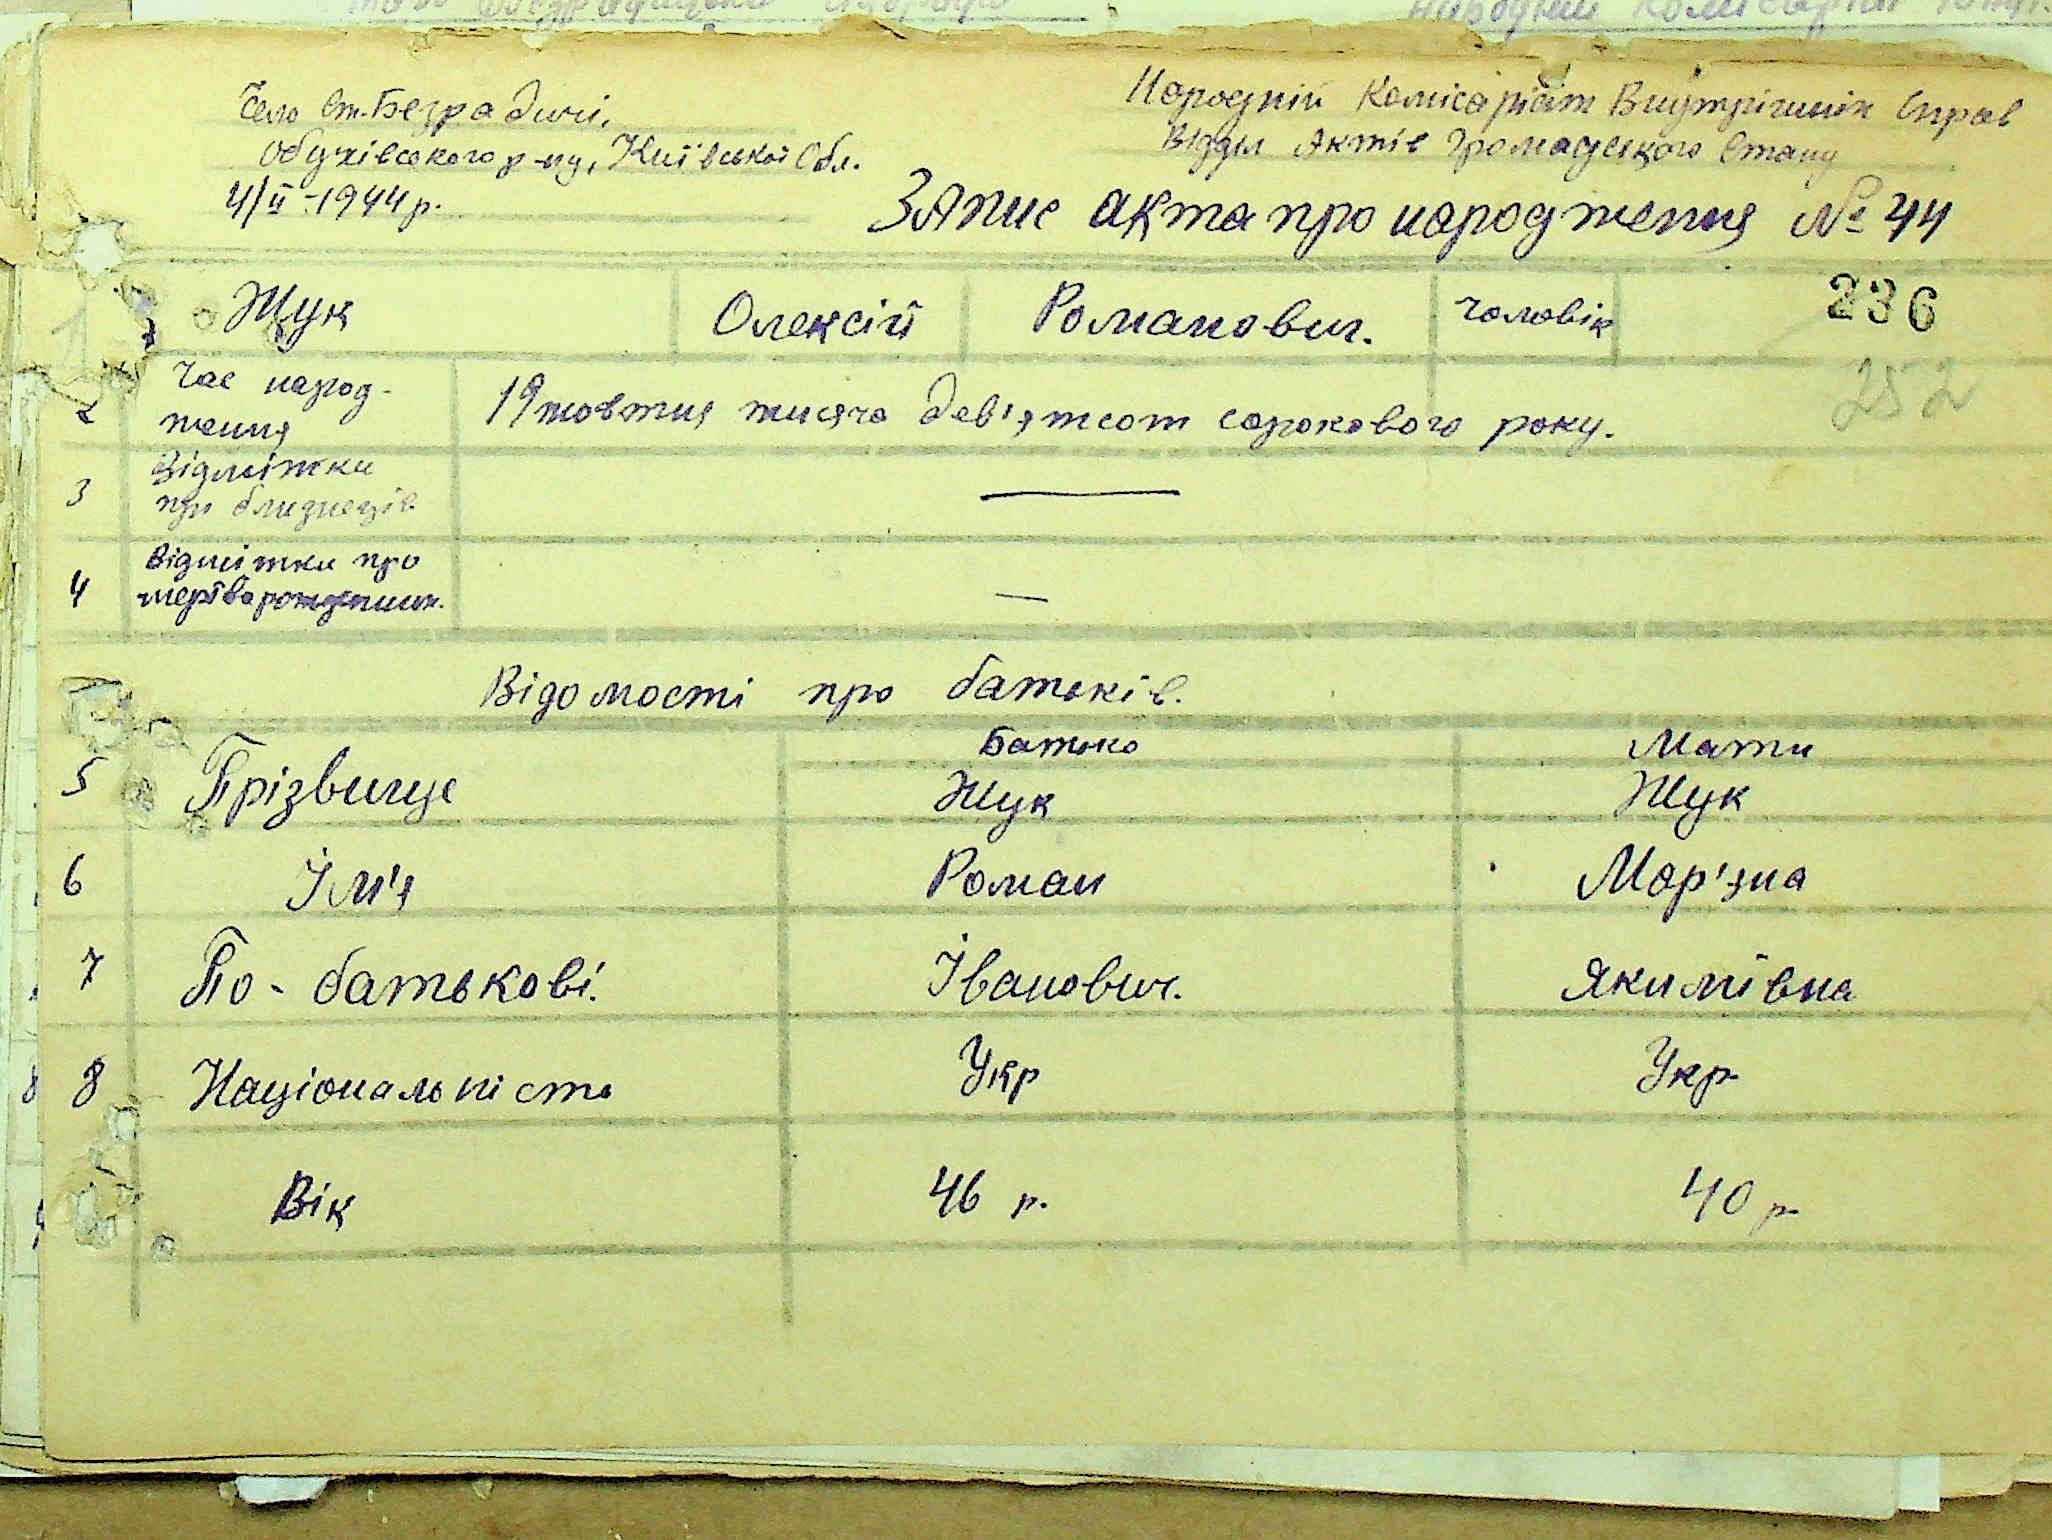 Село Ст. Безрадичі,
Обухівського р-ну, Київської Обл.
4/ІІ-1944 р.
Народній Комісаріат Внутрішніх Справ
Відділ Актів Громадського Стану
Запис акта про народження № 44
1 Жук Олексій Романович. чоловік 236
252
2 Час народ-
ження 19 жовтня тисяча дев'ятсот сорокового року.
3 Відмітки
при близнеців —
4 Відмітки про
—
Відомості про батьків.
Батько Мати
5 Прізвище Жук Жук
6 Ім'я Роман Мар'яна
7 По-батькові. Іванович. Якимівна
8 Національність Укр Укр.
Вік 46 р. 40 р.